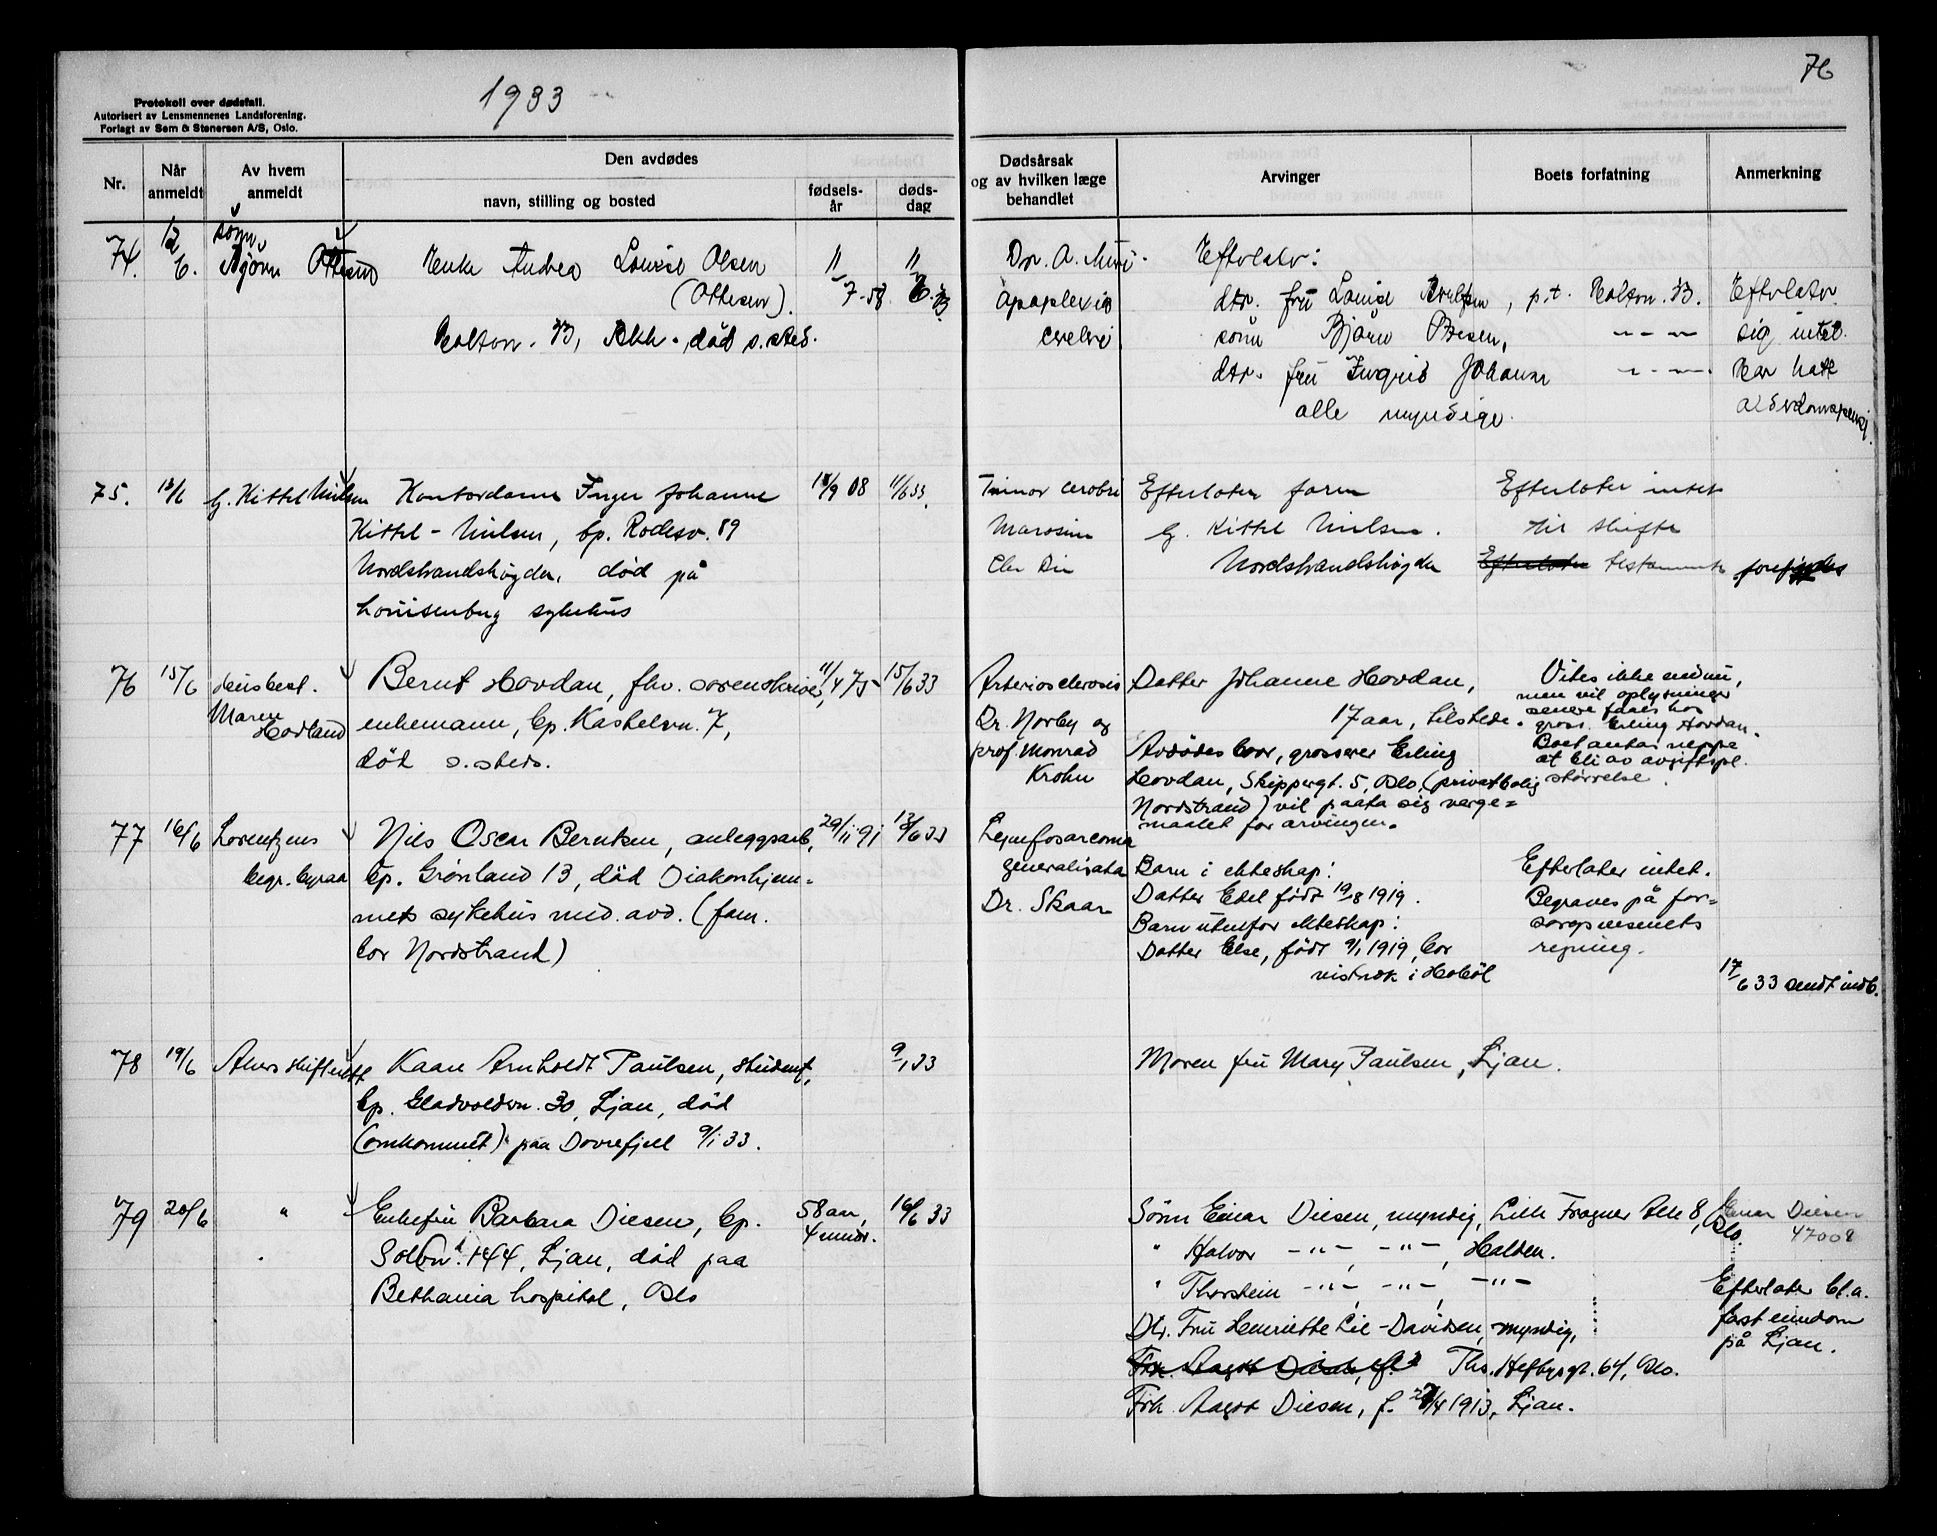 1933
76
Protokoll over dødsfall.
Autorisert av Lensmennenes Landsforening.
Forlagt av Sem & Stenersen A/S, Oslo.
Nr.
Når anmeldt
Av hvem anmeldt
Den avdødes
navn, stilling og bosted
fødsels-år
døds-dag
Dødsårsak og av hvilken læge behandlet
Arvinger
Boets forfatning
Anmerkning
74. 12/6. sønn Bjørn Ottesen
Enke Andrea Louise Olsen
(Ottesen).
Holton. B, Bkk. død s. sted.
11/7-58. 11/6.33
Dr. A.
apoplexia
cerebri
Efterlater:
dtr. fru Louise, p.t. Holton. B.
sønn Bjørn
dtr. fru Ingrid Johansen
alle myndige.
Efterlater
sig intet.
Har hatt
75. 13/6 G. Kittel Nielsen
Kontordame Inger Johanne
Kittel-Nielsen, bp. Rodesv. 89
Nordstrandshøgda, død på
Louisenberg sykehus
18/9 08 11/6 33.
Tumor cerebri
Efterlater faren
G. Kittel Nielsen.
Nordstrandshøgda
Efterlater intet
til skifte
Efterlater testamente forefindes
76 15/6 Husbest.
Maren
Hodland
Bernt Hovdan, fhv. sorenskriver,
enkemann, bp. Kastelvn. 7,
død s. steds.
11/4 75 15/6 33
Arteriosclerosis
Dr. Norby og
prof. Monrad
Krohn
Datter Johanne Hovdan,
17 aar, tilstede.
Avdødes bror, grosserer Erling
Hovdan, Skippergt. 5, Oslo, (privatbolig
Nordstrand) vil paata sig verge=
maalet for arvingen.
Vites ikke endnu,
men vil oplysninger
senere faaes hos
gross. Erling Hovdan.
Boet antas neppe
at bli av avgiftspl.
størrelse.
77 16/6 Lorentzens
begr. byraa
Nils Oscar Berntsen, anleggsarb.,
bp. Grønland 13, død Diakonhjem=
mets sykehus med. avd. (fam.
bor Nordstrand)
29/11 91 13/6 33
Lymfosarcoma
generalisata
Dr. Skaar
Barn i ekteskap:
Datter Edel født 19/8 1919.
Barn utenfor ekteskap:
Datter Else, født 9/1 1919, bor
vistnok i Hobøl
Efterlater intet.
Begraves på for=
sorgsvesenets
regning.
17/6 33 sendt indb.
78 19/6 Akers skifterett
Kaare Arnholdt Paulsen, student,
bp. Gladvoldvn. 30, Ljan, død
(omkommet) paa Dovrefjell 9/1 33.
9/1 33
Moren fru Mary Paulsen, Ljan.
79 20/6 "
Enkefru Barbara Diesen, bp.
Solbvn. 144, Ljan, død paa
Bethania hospital, Oslo
58 aar,
4 mndr.
16/6 33
Sønn Einar Diesen, myndig, Lille Frogner Alle 8, Oslo.
" Halvor -"-, -"-, Halden.
" Thorstein -"-, -"-, -"-
Dtr. Fru Henriette Lie-Davidsen, myndig,
Frk. Aagot Diesen, f. Ths. Heftyesgt. 64, Oslo.
Frk. Aagot Diesen, f. 27/4 1913, Ljan.
Einar Diesen
47008
Efterlater bl.a.
fast eiendom
på Ljan.